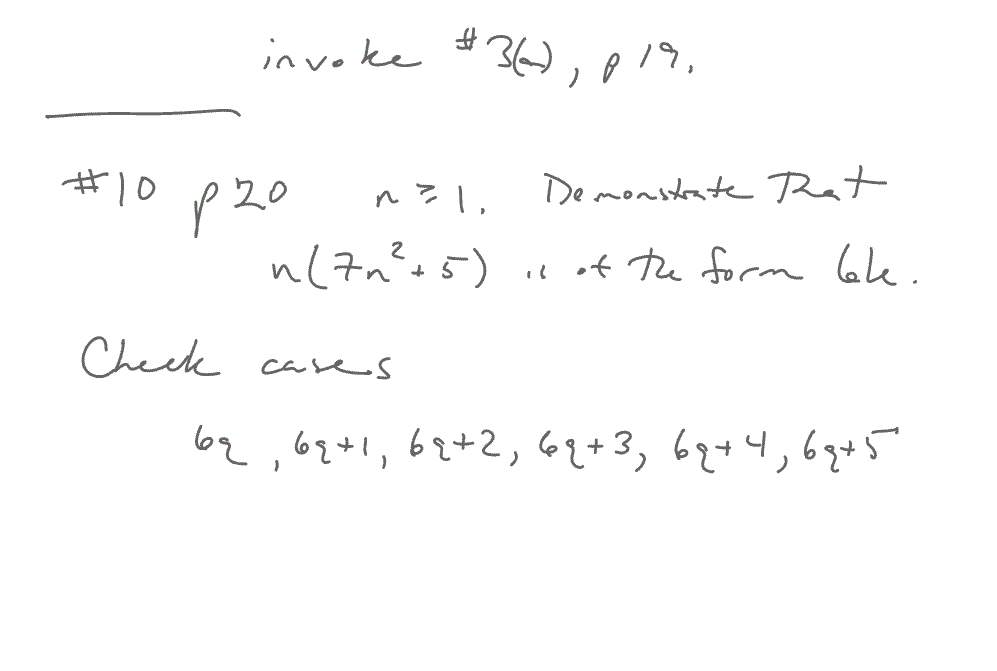 invoke #3(a), p 19.
#10 p20 n ≥ 1. Demonstrate that
n(7n²+5) is of the form 6k.
Check cases
6q, 6q+1, 6q+2, 6q+3, 6q+4, 6q+5